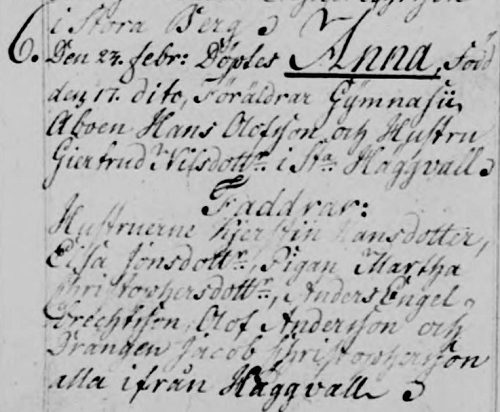 i Stora Berg
6. Den 23. febr: Döptes Anna, Född
den 17. dito, Föräldrar Gÿmnasii
Åboen Hans Olofsson och Hustru
Giertrud Nilsdottr. i Sta Häggvall
Faddrar:
Hustruerne Kjerstin Hansdotter,
Elsa Jonsdottr, Pigan Martha
Christophersdottr, Anders Engel-
brechtsson, Olof Andersson och
Drängen Jacob Christophersson
alla ifrån Häggvall